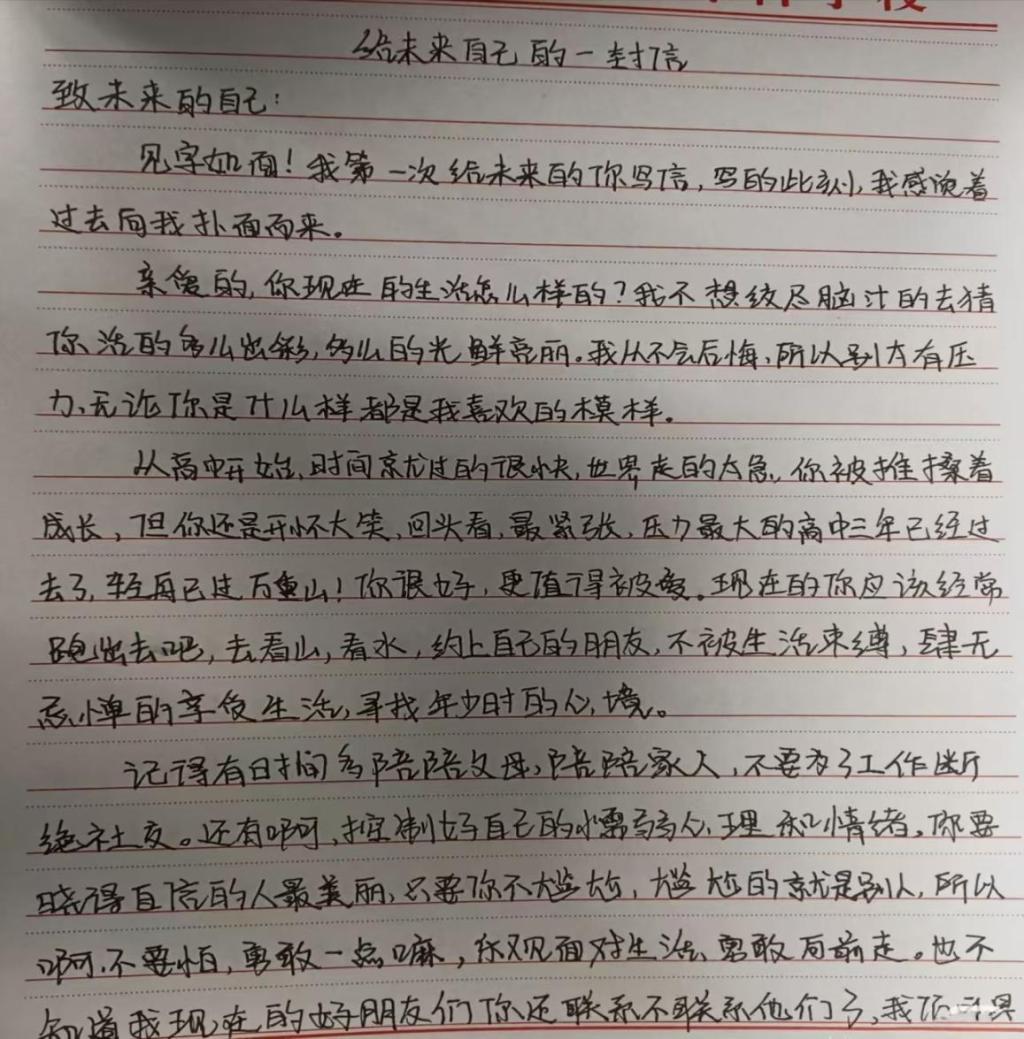 给未来自己的一封信
致未来的自己:
见字如面!我第一次给未来的你写信,写的此刻,我感觉着
过去向我扑面而来。
亲爱的,你现在的生活怎么样的?我不想绞尽脑汁的去猜
你活的多么出彩,多么的光鲜亮丽。我从不会后悔,所以别太有压
力,无论你是什么样都是我喜欢的模样。
从高中开始,时间就过的很快,世界走的太急,你被推搡着
成长,但你还是开怀大笑,回头看,最紧张,压力最大的高中三年已经过
去了,轻舟已过万重山!你很好,更值得被爱。现在的你应该经常
跑出去吧,去看山,看水,约上自己的朋友,不被生活束缚,肆无
忌惮的享受生活,寻找年少时的心境。
记得有时间多陪陪父母,陪陪家人,不要为了工作断
绝社交。还有啊,控制好自己的懦弱心理和情绪。你要
晓得自信的人最美丽,只要你不尴尬,尴尬的就是别人,所以
啊,不要怕,勇敢一点嘛,乐观面对生活,勇敢向前走。也不
知道我现在的好朋友们你还联系不联系他们了,我